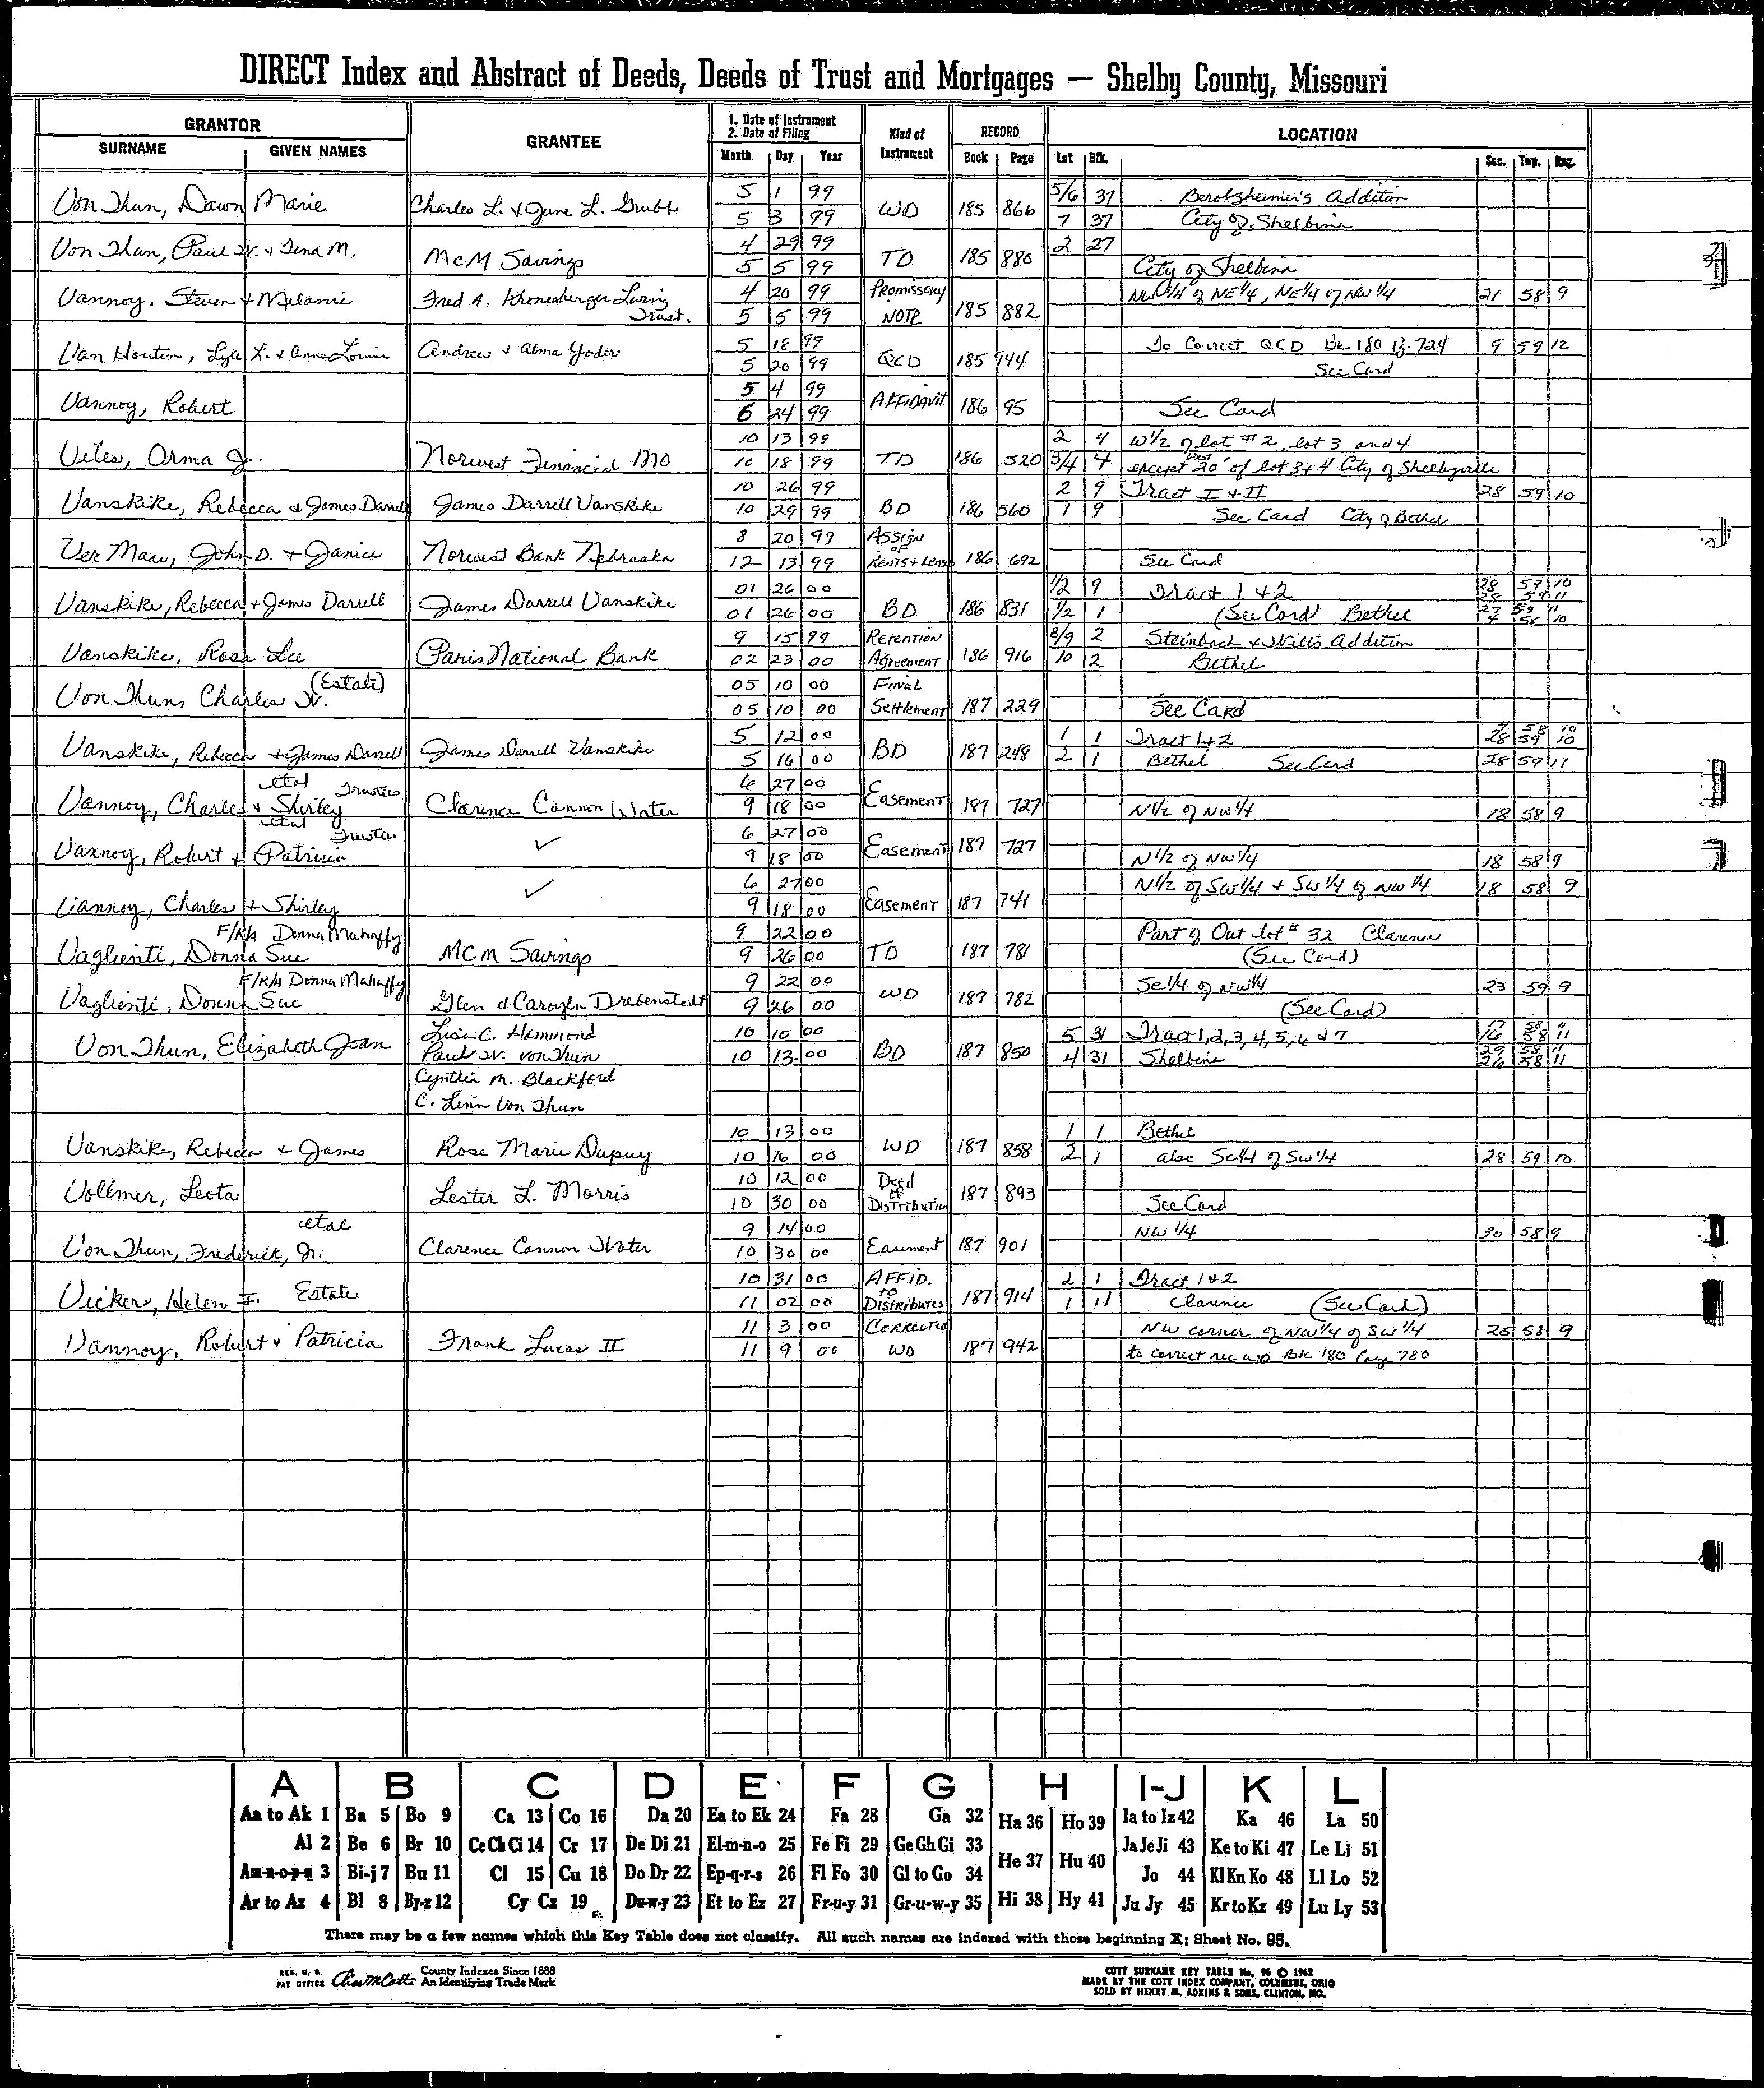 DIRECT Index and Abstract of Deeds, Deeds of Trust and Mortgages — Shelby County, Missouri
GRANTOR GRANTEE 1. Date of Instrument 2. Date of Filing Kind of Instrument RECORD LOCATION
SURNAME GIVEN NAMES Month Day Year Book Page Lot Blk. Sec. Twp. Rng.
Von Thun, Dawn Marie Charles L. & June L. 5 1 99 WD 185 866 5/6 37 Berotzheimer's Addition
5 3 99 7 37 City of Shelbina
Von Thun, Paul W. & Tena M. McM Savings 4 29 99 TD 185 880 2 27
5 5 99 City of Shelbina
Vannoy, Steven & Melanie Fred A. Kronenberger Living Trust. 4 20 99 Promissory NOTE 185 882 NW 1/4 of NE 1/4, NE 1/4 of NW 1/4 21 58 9
5 5 99
Van Houten, Lyle L. & Anna Louise Andrew & Alma Yoder 5 18 99 QCD 185 944 To Correct QCD Bk 180 P. 724 9 59 12
5 20 99 See Card
Vannoy, Robert 5 4 99 AFFIDAVIT 186 95
6 24 99 See Card
Viles, Orma J. Norwest Financial MO 10 13 99 TD 186 520 2 4 W 1/2 of lot #2, lot 3 and 4
10 18 99 3/4 4 except 20' of lot 3 + 4 City of Shelbyville
Vanskike, Rebecca & James Darrell James Darrell Vanskike 10 26 99 BD 186 560 2 9 Tract I + II 28 59 10
10 29 99 1 9 See Card City of Bethel
Ver Maas, John D. & Janice Norwest Bank Nebraska 8 20 99 Assign of Rents + Lease 186 692
12 13 99 See Card
Vanskike, Rebecca + James Darrell James Darrell Vanskike 01 26 00 BD 186 831 1/2 9 Tract 1 & 2 28 59 10
28 59 11
01 26 00 1/2 1 (See Card) Bethel 27 59 11
4 58 10
Vanskike, Rosa Lee Paris National Bank 9 15 99 Retention Agreement 186 916 8/9 2 Steinbach & Will's Addition
02 23 00 10 2 Bethel
Von Thun, Charles W. (Estate) 05 10 00 Final Settlement 187 229
05 10 00 See Card
Vanskike, Rebecca & James Darrell James Darrell Vanskike 5 12 00 BD 187 248 1 1 Tract 1 & 2 58 10
28 59 10
5 16 00 2 1 Bethel See Card 28 59 11
Vannoy, Charles & Shirley etal Trustees Clarence Cannon Water 6 27 00 Easement 187 727
9 18 00 N 1/2 of NW 1/4 18 58 9
Vannoy, Robert & Patricia etal Trustees ✓ 6 27 00 Easement 187 727
9 18 00 N 1/2 of NW 1/4 18 58 9
Vannoy, Charles & Shirley ✓ 6 27 00 Easement 187 741 N 1/2 of SW 1/4 + SW 1/4 of NW 1/4 18 58 9
9 18 00
Vaglienti, Donna Sue F/K/A Donna Mahaffy MCM Savings 9 22 00 TD 187 781 Part of Out lot # 32 Clarence
9 26 00 (See Card)
Vaglienti, Donna Sue F/K/A Donna Mahaffy Glen & Carolyn Drebenstedt 9 22 00 WD 187 782 SE 1/4 of NW 1/4 23 59 9
9 26 00 (See Card)
Von Thun, Elizabeth Jean C. Hammond 10 10 00 BD 187 850 5 31 Tract 1, 2, 3, 4, 5, 6 & 7 17 58 11
16 58 11
Paul W. VonThun 10 13 00 4 31 Shelbina 29 58 11
26 58 11
Cynthia M. Blackford
C. Linn Von Thun
Vanskike, Rebecca & James Rose Marie Dupuy 10 13 00 WD 187 858 1 1 Bethel
10 16 00 2 1 also SE 1/4 of SW 1/4 28 59 10
Vollmer, Leota Lester L. Morris 10 12 00 Deed of Distribution 187 893
10 30 00 See Card
Von Thun, Frederick, Jr. etal Clarence Cannon Water 9 14 00 Easement 187 901 NW 1/4 30 58 9
10 30 00
Vicker, Helen I. Estate 10 31 00 AFFID. to Distributes 187 914 2 1 Tract 1 & 2
11 02 00 1 11 Clarence (See Card)
Vannoy, Robert & Patricia Frank Lucas II 11 3 00 Corrected WD 187 942 NW corner of NW 1/4 of SW 1/4 25 58 9
11 9 00 to correct rec WD Bk 180 Page 780
A B C D E F G H I-J K L
Aa to Ak 1 Ba 5 Bo 9 Ca 13 Co 16 Da 20 Ea to Ek 24 Fa 28 Ga 32 Ha 36 Ho 39 Ia to Iz 42 Ka 46 La 50
Al 2 Be 6 Br 10 Ce Ch Ci 14 Cr 17 De Di 21 El-m-n-o 25 Fe Fi 29 Ge Gh Gi 33 He 37 Hu 40 Ja Je Ji 43 Ke to Ki 47 Le Li 51
Am-n-o-p-q 3 Bi-j 7 Bu 11 Cl 15 Cu 18 Do Dr 22 Ep-q-r-s 26 Fl Fo 30 Gl to Go 34 Jo 44 Kl Kn Ko 48 Ll Lo 52
Ar to Az 4 Bl 8 By-z 12 Cy Cz 19 Du-w-y 23 Et to Ez 27 Fr-u-y 31 Gr-u-w-y 35 Hi 38 Hy 41 Ju Jy 45 Kr to Kz 49 Lu Ly 53
There may be a few names which this Key Table does not classify. All such names are indexed with those beginning X; Sheet No. 95.
REG. U. S. PAT OFFICE County Indexes Since 1888
An Identifying Trade Mark
COTT SURNAME KEY TABLE No. 96 © 1962
MADE BY THE COTT INDEX COMPANY, COLUMBUS, OHIO
SOLD BY HENRY M. ADKINS & SONS, CLINTON, MO.